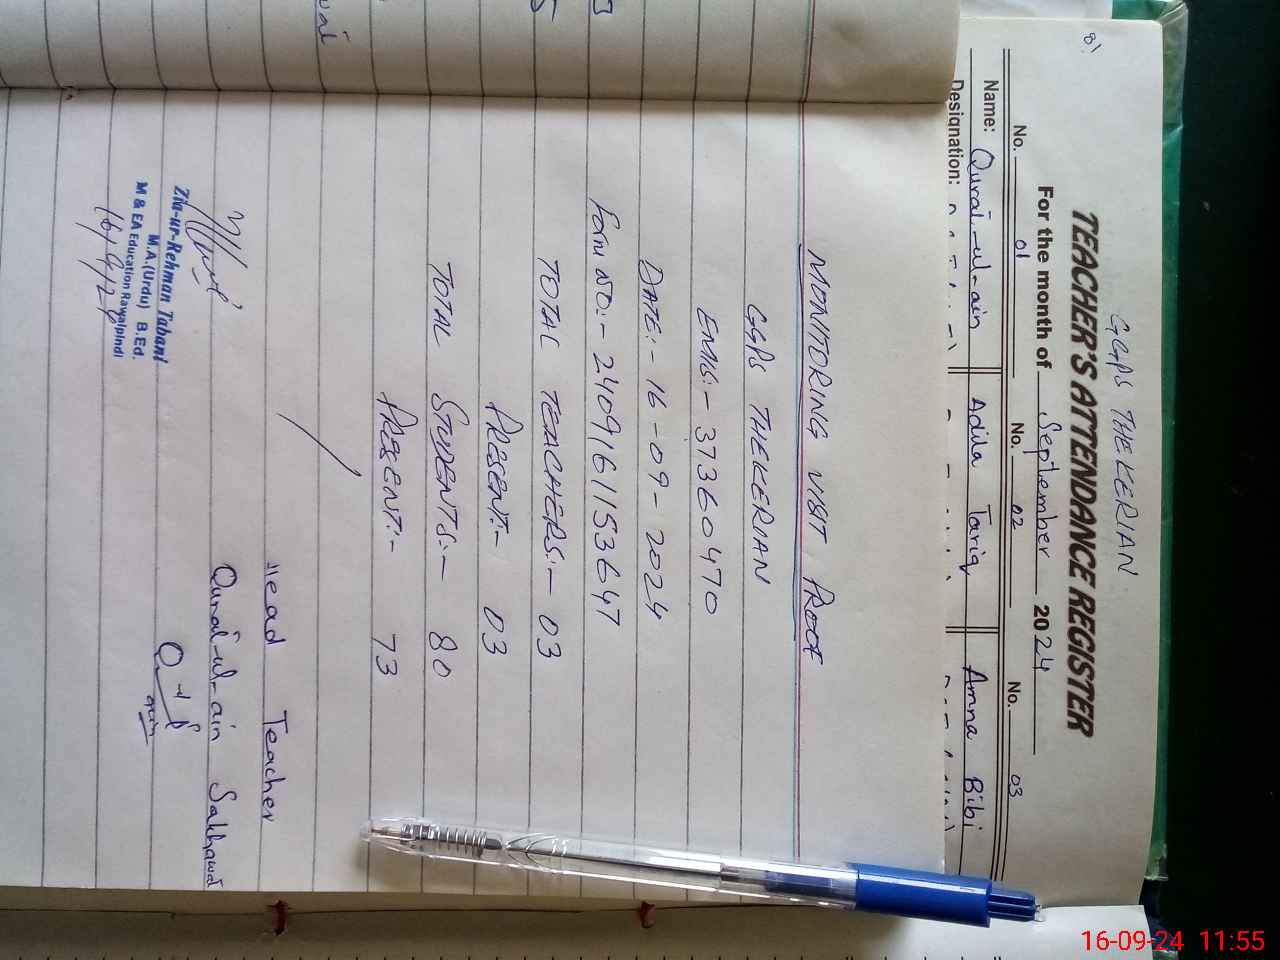 81
GGPS THEKERIAN
TEACHER'S ATTENDANCE REGISTER
For the month of September 2024
No. 01 No. 02 No. 03
Name: Qurat-ul-ain Adila Tariq Amna Bibi
Designation:
MONITORING VISIT PROOF
GGPS THEKERIAN
EMIS:- 37360470
DATE:- 16-09-2024
Form NO:- 2409161153647
TOTAL TEACHERS:- 03
PRESENT:- 03
TOTAL STUDENTS:- 80
PRESENT:- 73
Head Teacher
Qurat-ul-ain Sakhawat
Zia-ur-Rehman Tabani
M.A.(Urdu) B.Ed.
M & EA Education Rawalpindi
16/9/24
16-09-24 11:55